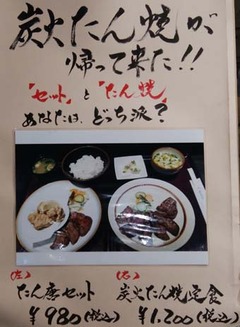 炭火たん焼が
帰って来た!!
「セット」と「たん焼」
あなたは、どっち派?
(左) (右)
たん唐セット 炭火たん焼定食
¥980(税込) ¥1.200(税込)